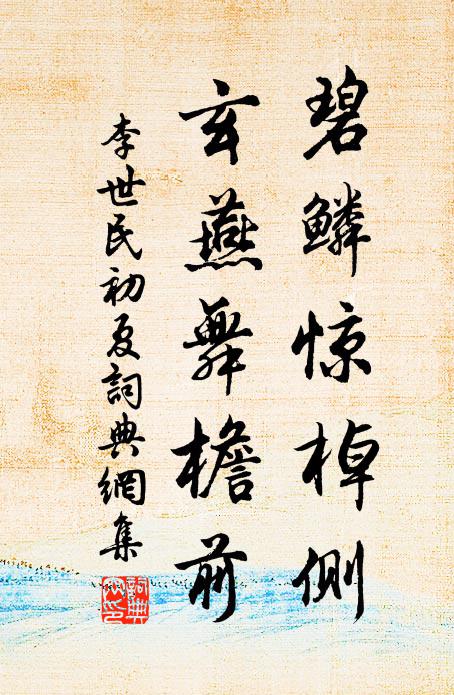 碧鳞惊棹側
玄燕舞檐前
李世民初夏詞典網集